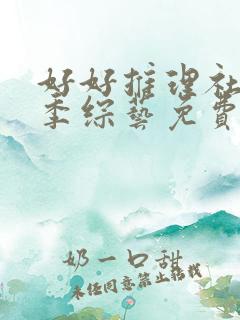 好好推理社
季综艺免费
奶一口甜
未经同意禁止转载